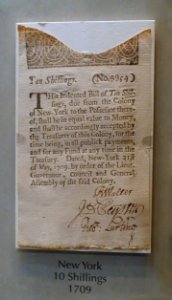 Ten Shillings. (No. 9854)
THis Indented Bill of Ten Shil-
lings, due from the Colony
of New-York to the Possessor there-
of, shall be in equal value to Money,
and shall be accordingly accepted by
the Treasurer of this Colony, for the
time being, in all publick payments,
and for any Fund at any time in the
Treasury. Dated, New-York 31st
of May, 1709. by order of the Lieut.
Governour, council and General
Assembly of the said Colony.
New York
10 Shillings
1709